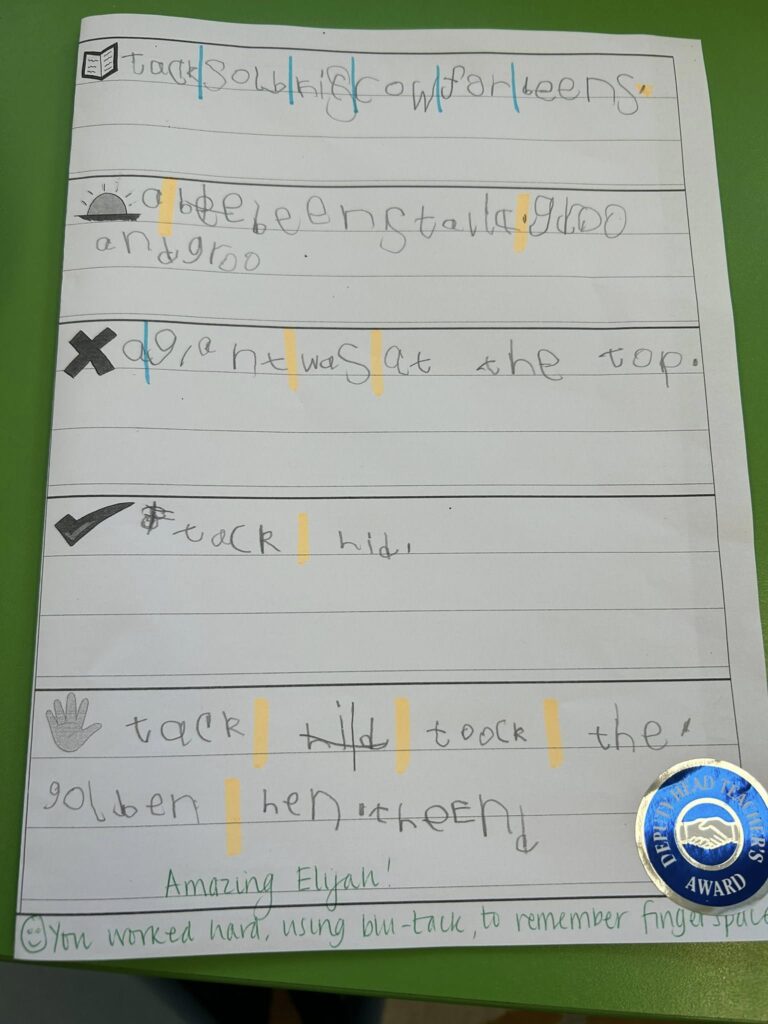 tack sold hiS cow for beens.
a bee beenstalk. groo
and groo
a giant was at the top.
tack hid.
tack hid toock the
golben hen. theEnd
Amazing Elijah!
You worked hard, using blu-tack, to remember fingerspace
DEPUTY HEAD TEACHER'S
AWARD